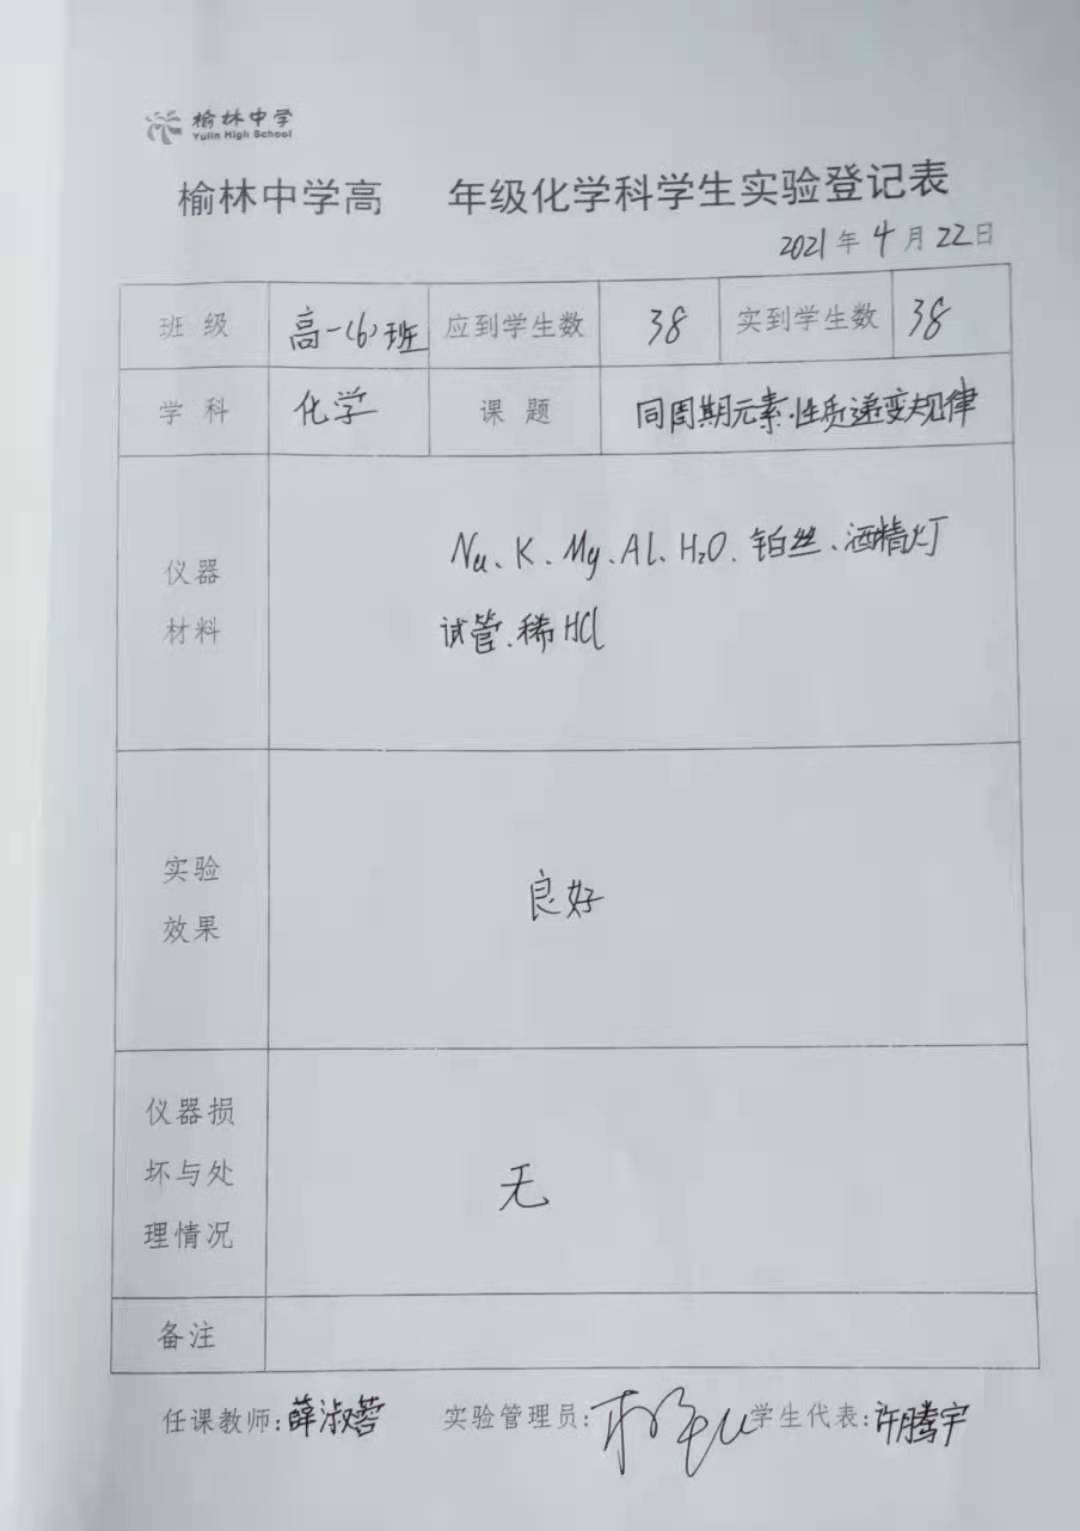 榆林中学
Yulin High School
榆林中学高 年级化学科学生实验登记表
2021年4月22日
班级 高一(6)班 应到学生数 38 实到学生数 38
学科 化学 课题 同周期元素性质递变规律
仪器
材料
Na、K、Mg、Al、H₂O、铂丝、酒精灯
试管、稀HCl
实验
效果
良好
仪器损
坏与处
理情况
无
备注
任课教师:薛淑蓉 实验管理员: 学生代表:许腾宇